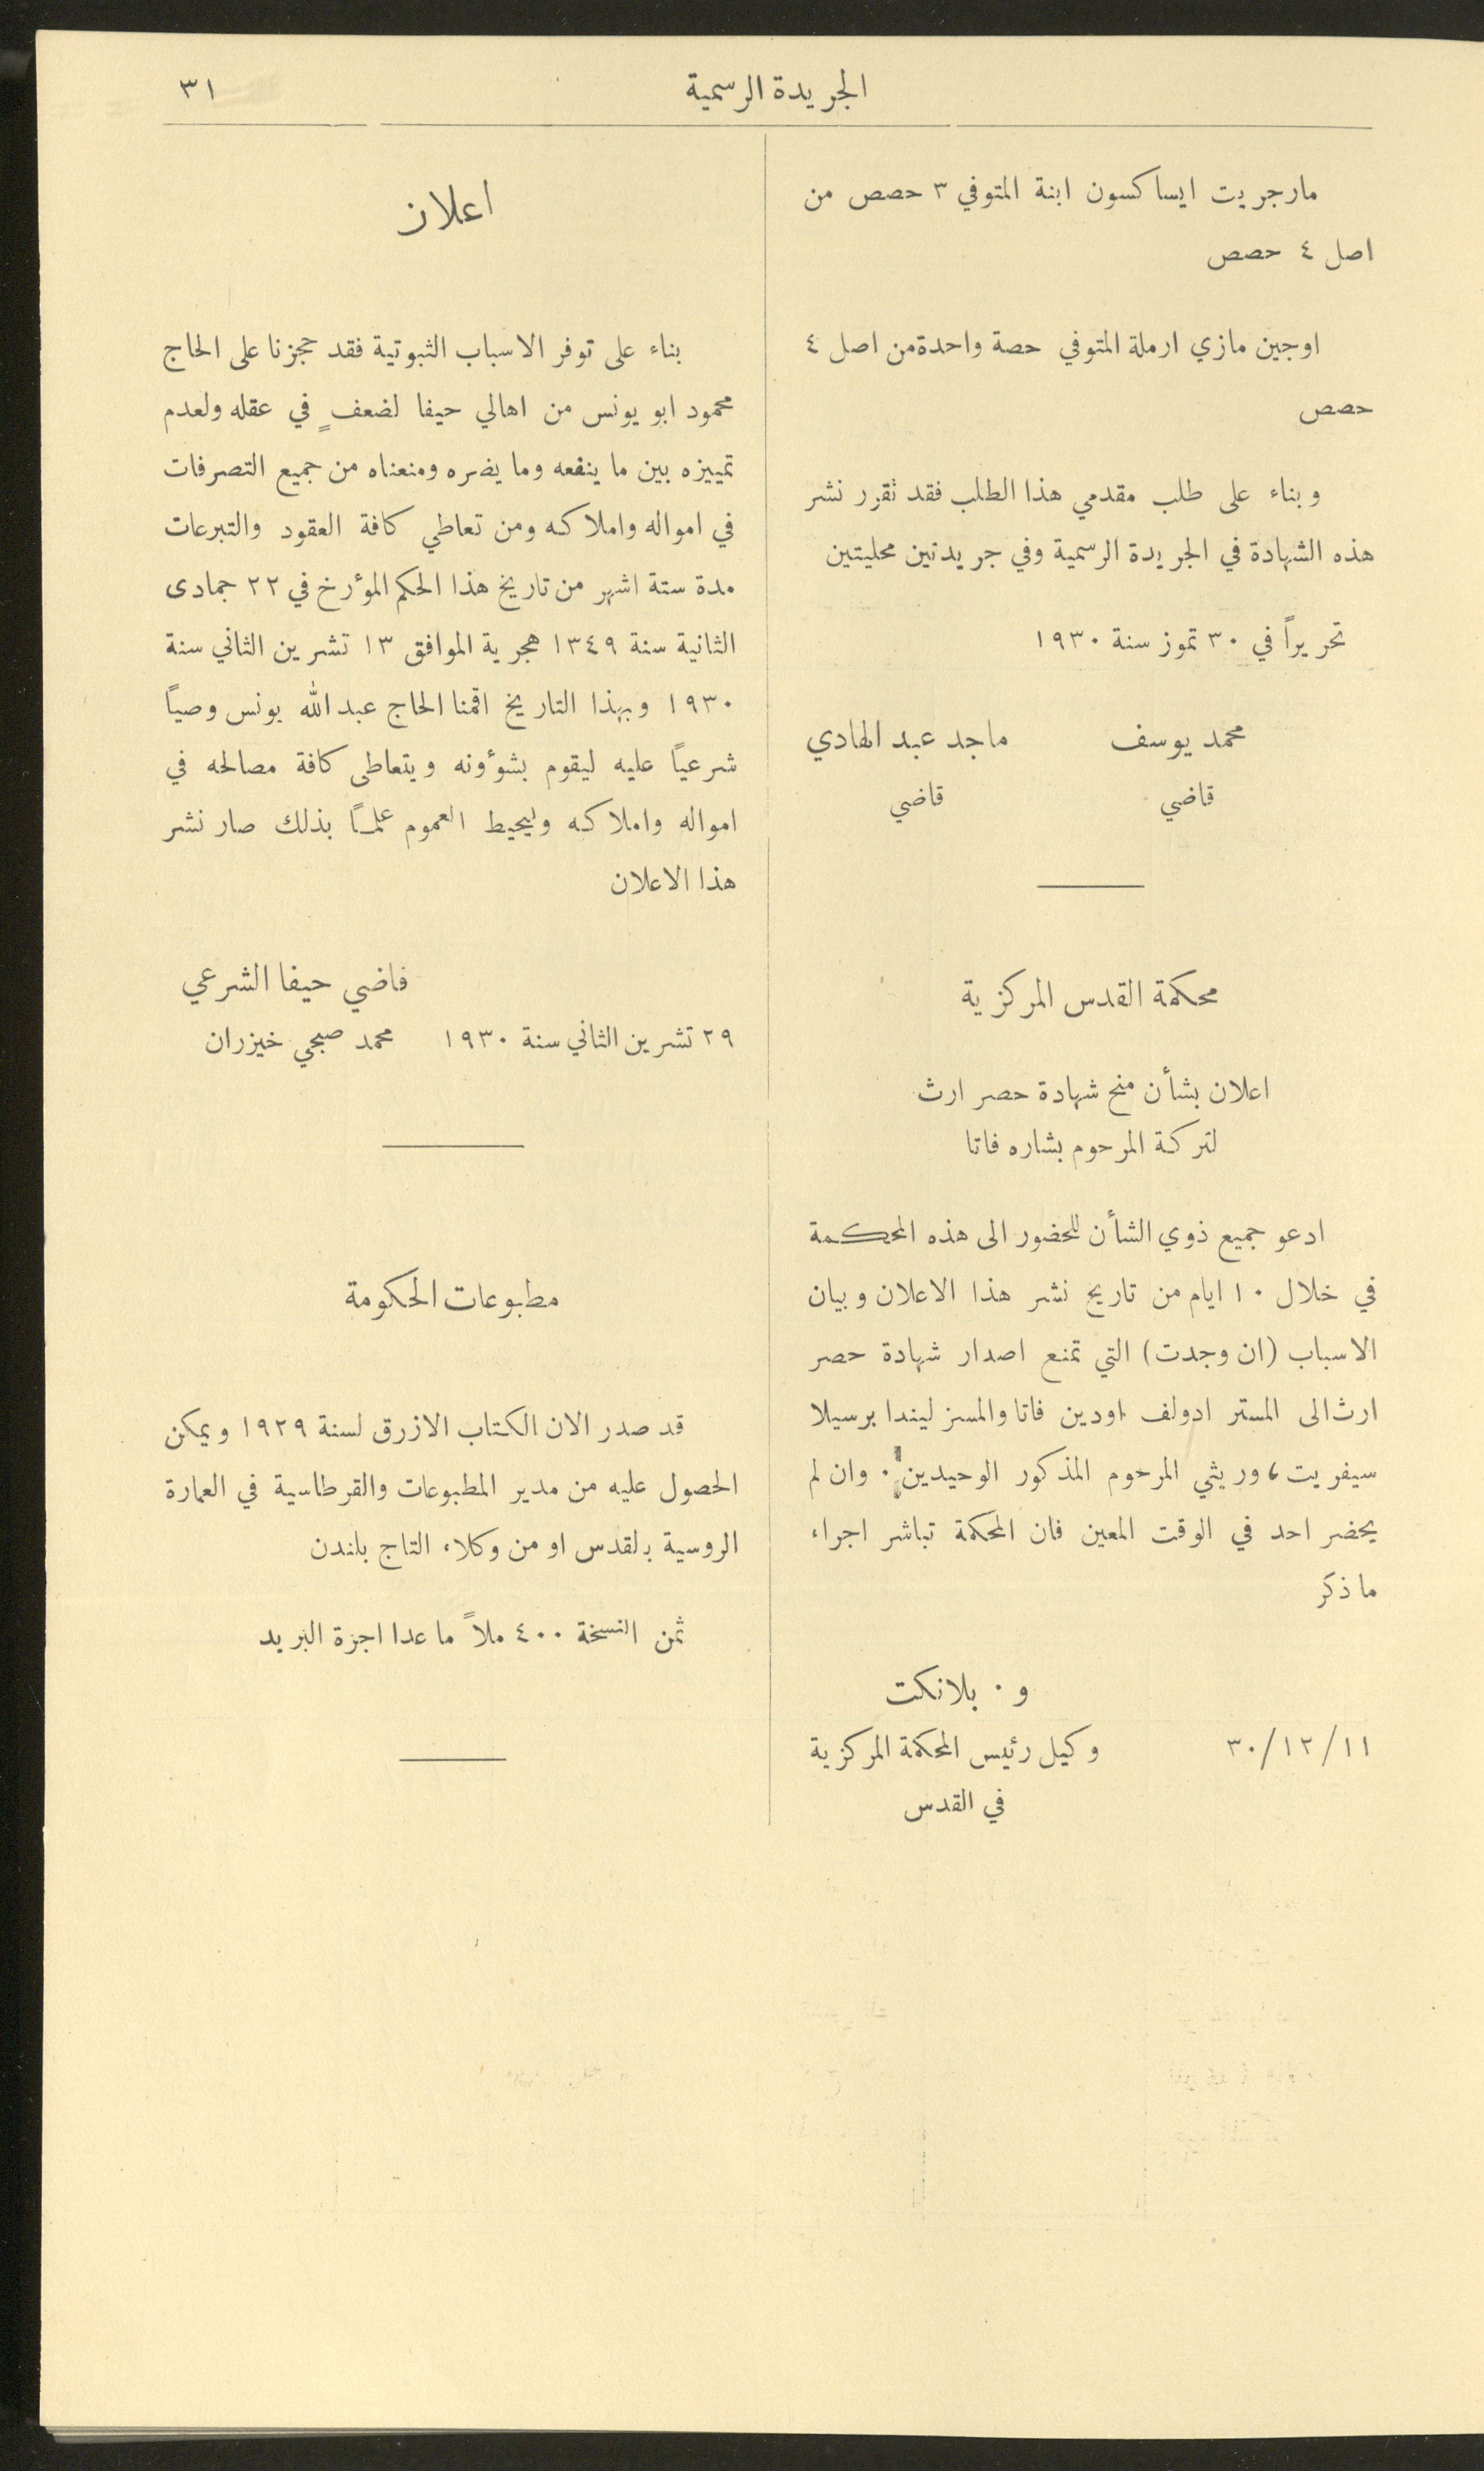 الجريدة الرسمية
٣١
مارجريت ايساكسون ابنة المتوفي ٣ حصص من
اصل ٤ حصص
اوجين مازي ارملة المتوفي حصة واحدة من اصل ٤
حصص
وبناء على طلب مقدمي هذا الطلب فقد تقرر نشر
هذه الشهادة في الجريدة الرسمية وفي جريدتين محليتين
تحريراً في ٣٠ تموز سنة ١٩٣٠
محمد يوسف ماجد عبد الهادي
قاضي قاضي
محكمة القدس المركزية
اعلان بشأن منح شهادة حصر ارث
لتركة المرحوم بشاره فاتا
ادعو جميع ذوي الشأن للحضور الى هذه المحكمة
في خلال ١٠ ايام من تاريخ نشر هذا الاعلان وبيان
الاسباب (ان وجدت) التي تمنع اصدار شهادة حصر
ارث الى المستر ادولف اودين فاتا والمسز ليندا برسيلا
سيفريت، وريثي المرحوم المذكور الوحيدين. وان لم
يحضر احد في الوقت المعين فان المحكمة تباشر اجراء
ما ذكر
و. بلانكت
٣٠/١٢/١١ وكيل رئيس المحكمة المركزية
في القدس
اعلان
بناء على توفر الاسباب الثبوتية فقد حجزنا على الحاج
محمود ابو يونس من اهالي حيفا لضعفٍ في عقله ولعدم
تمييزه بين ما ينفعه وما يضره ومنعناه من جميع التصرفات
في امواله واملاكه ومن تعاطي كافة العقود والتبرعات
مدة ستة اشهر من تاريخ هذا الحكم المؤرخ في ٢٢ جمادى
الثانية سنة ١٣٤٩ هجرية الموافق ١٣ تشرين الثاني سنة
١٩٣٠ وبهذا التاريخ اقمنا الحاج عبد الله يونس وصياً
شرعياً عليه ليقوم بشوؤنه ويتعاطى كافة مصالحه في
امواله واملاكه وليحيط العموم علماً بذلك صار نشر
هذا الاعلان
قاضي حيفا الشرعي
٢٩ تشرين الثاني سنة ١٩٣٠ محمد صبحي خيزران
مطبوعات الحكومة
قد صدر الان الكتاب الازرق لسنة ١٩٢٩ ويمكن
الحصول عليه من مدير المطبوعات والقرطاسية في العمارة
الروسية بالقدس او من وكلاء التاج بلندن
ثمن النسخة ٤٠٠ ملاً ما عدا اجرة البريد